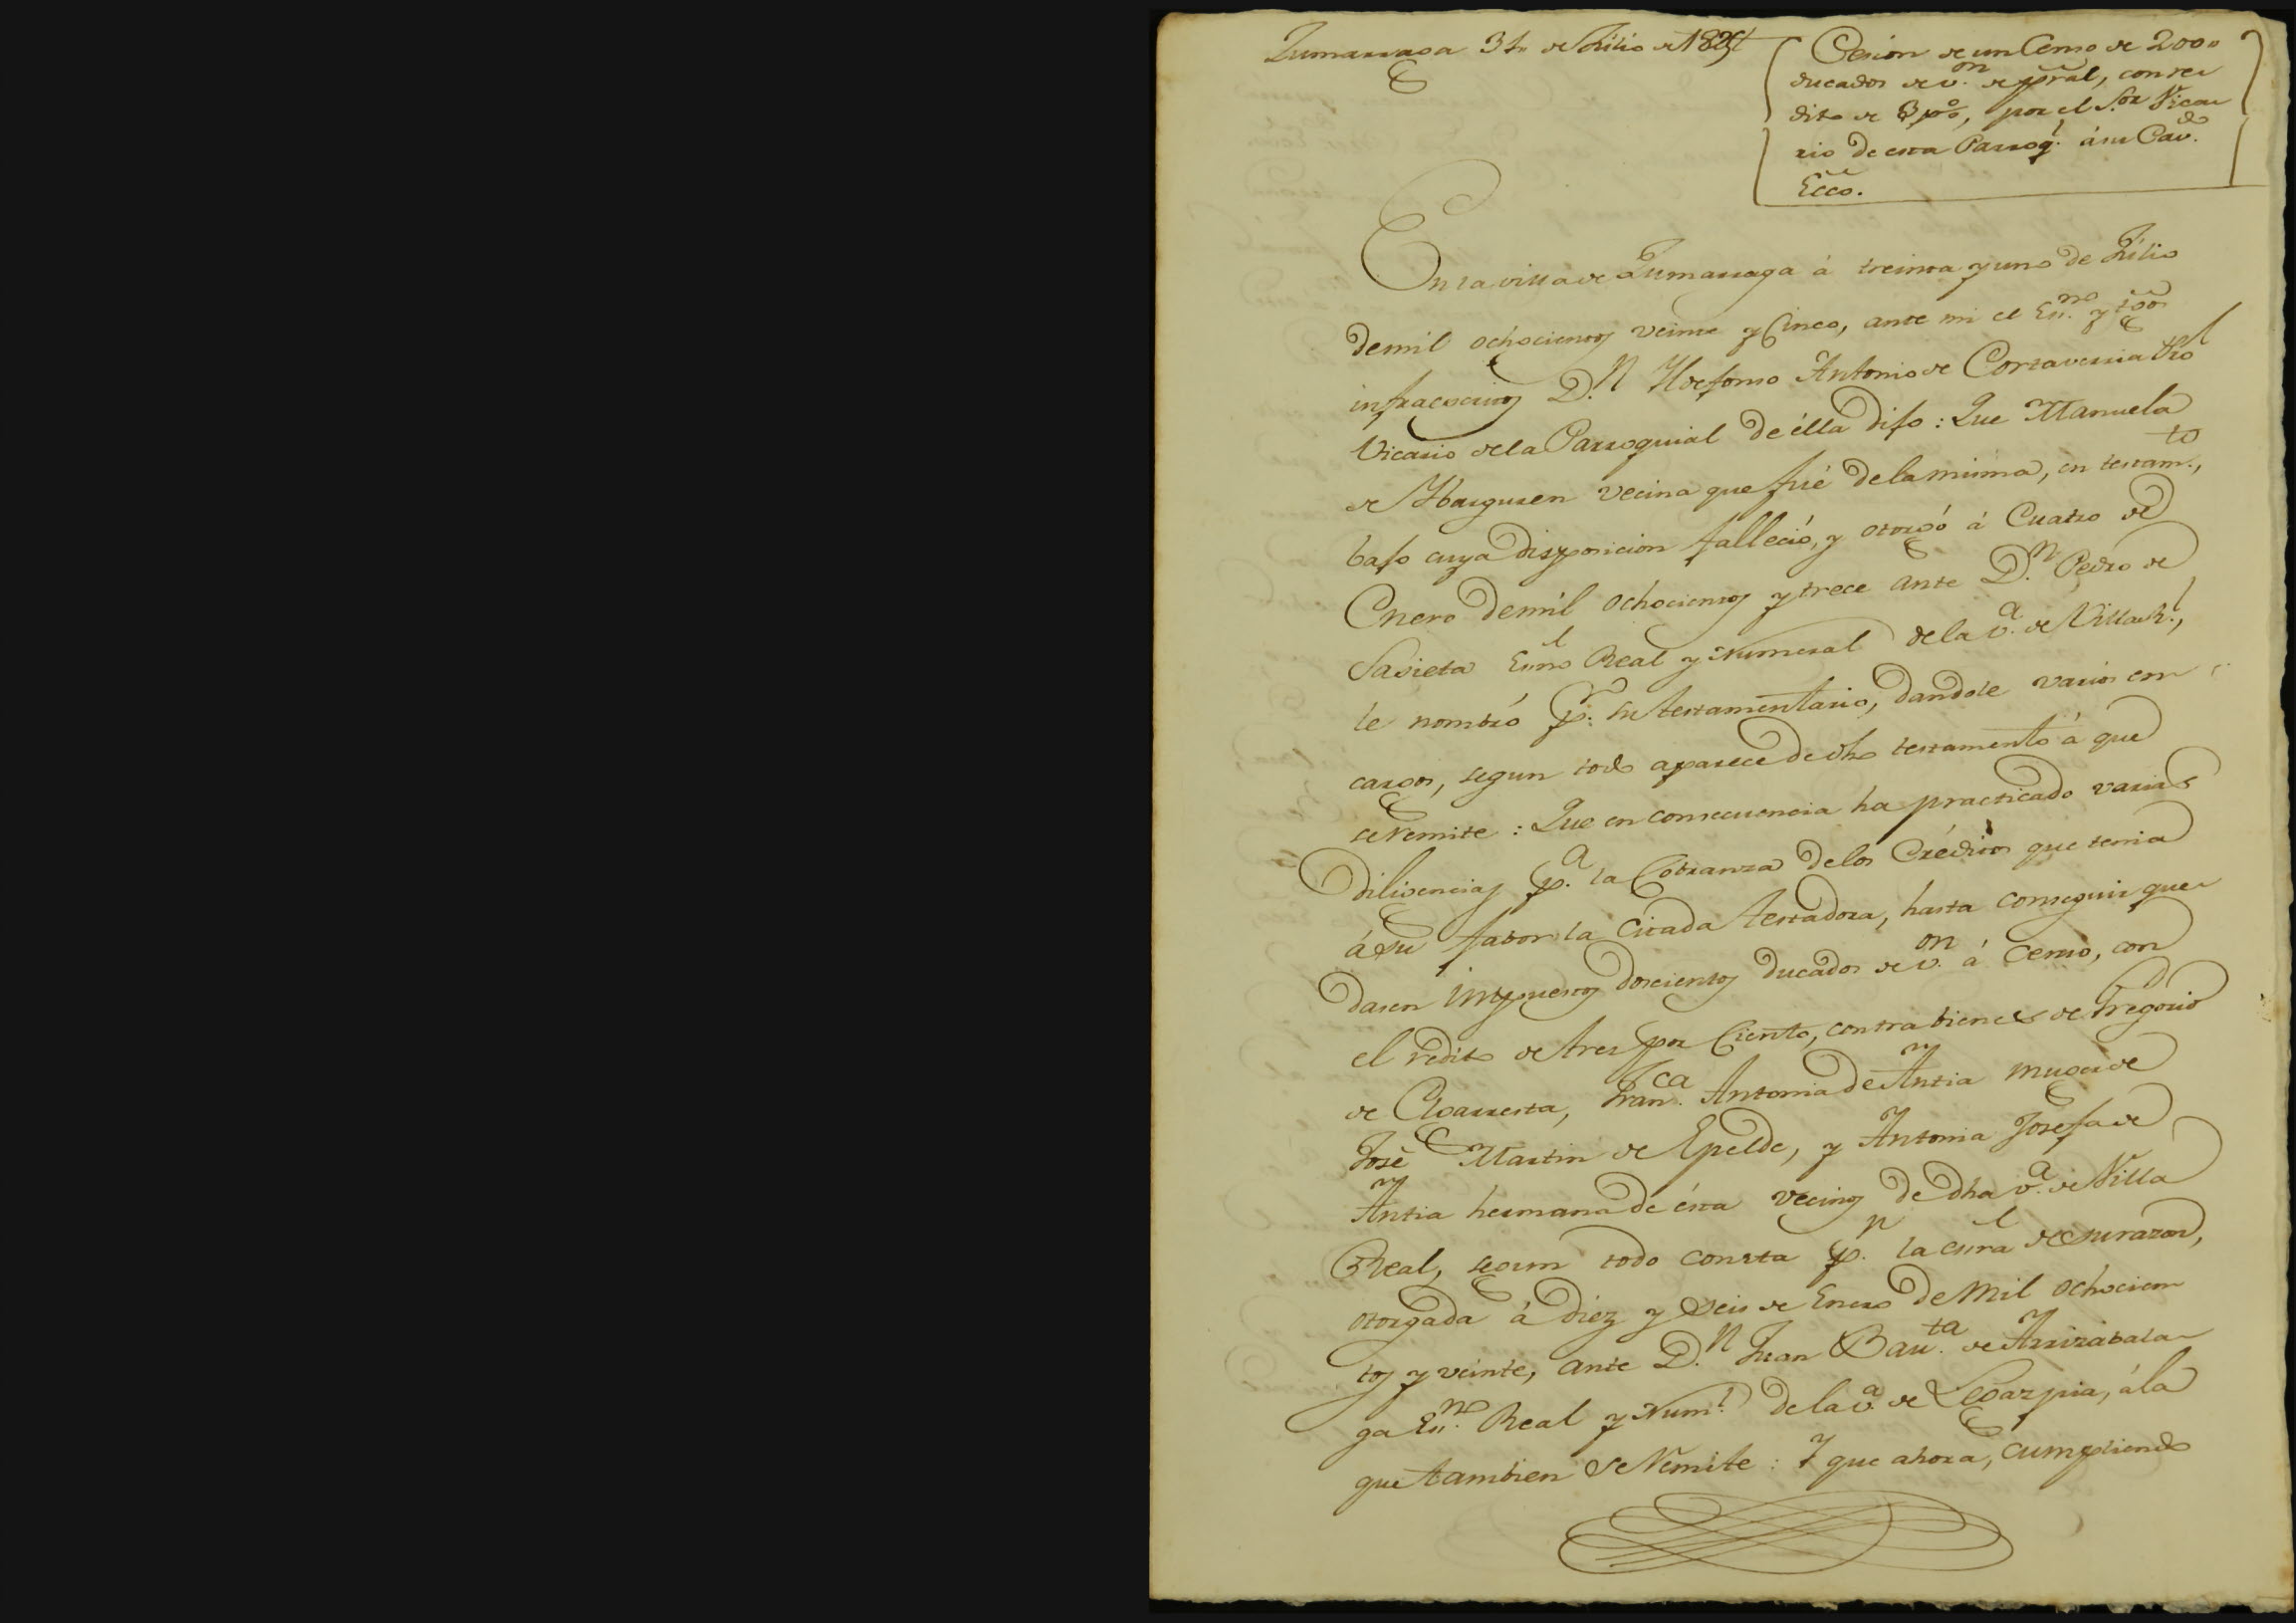 Zumarraga 31 de Julio de 1825
Cesion de un Censo de 200,,
ducados de v.on de ppral, con re-
dito de 3 p%, por el S.or Vica-
rio de esta Parroq.l á su Cav.do
Ecco.
En la villa de Zumarraga á treinta y uno de Julio
de mil ochocientos veinte y Cinco, ante mi el Es.no y tgos
infraescritos D.n Yldefonso Antonio de Cortaverria Pro
Vicario de la Parroquial de élla dijo: Que Manuela
de Ybarguren vecina que fué de la misma, en testam.to,
bajo cuya disposicion falleció, y otorgó á Cuatro de
Enero de mil ochocientos y trece ante D.n Pedro de
Sasieta Esno Real y Numeral de la v.a de VillaR.l,
le nombró p.r su testamentario, dandole varios en-
cargos, segun todo aparece de dho testamento á que
se remite: Que en consecuencia ha practicado varias
diligencias p.a la Cobranza de los Créditos que tenia
á su fabor la Citada testadora, hasta conseguir que-
dasen impuestos doscientos ducados de v.on á Censo, con
el rédito de tres por Ciento, contra bienes de Gregorio
de Elgarresta, Fran.ca Antonia de Antia muger de
José Martin de Epelde, y Antonia Josefa de
Antia hermana de ésta vecinos de dha v.a de Villa
Real, segun todo consta p.r la esra de su razon,
otorgada á diez y seis de Enero de mil ochocien-
tos y veinte, ante D.n Juan Bau.ta de Arrizabala-
ga Es.no Real y Num.l de la v.a de Legazpia, á la
que tambien se remite: Y que ahora, cumpliendo